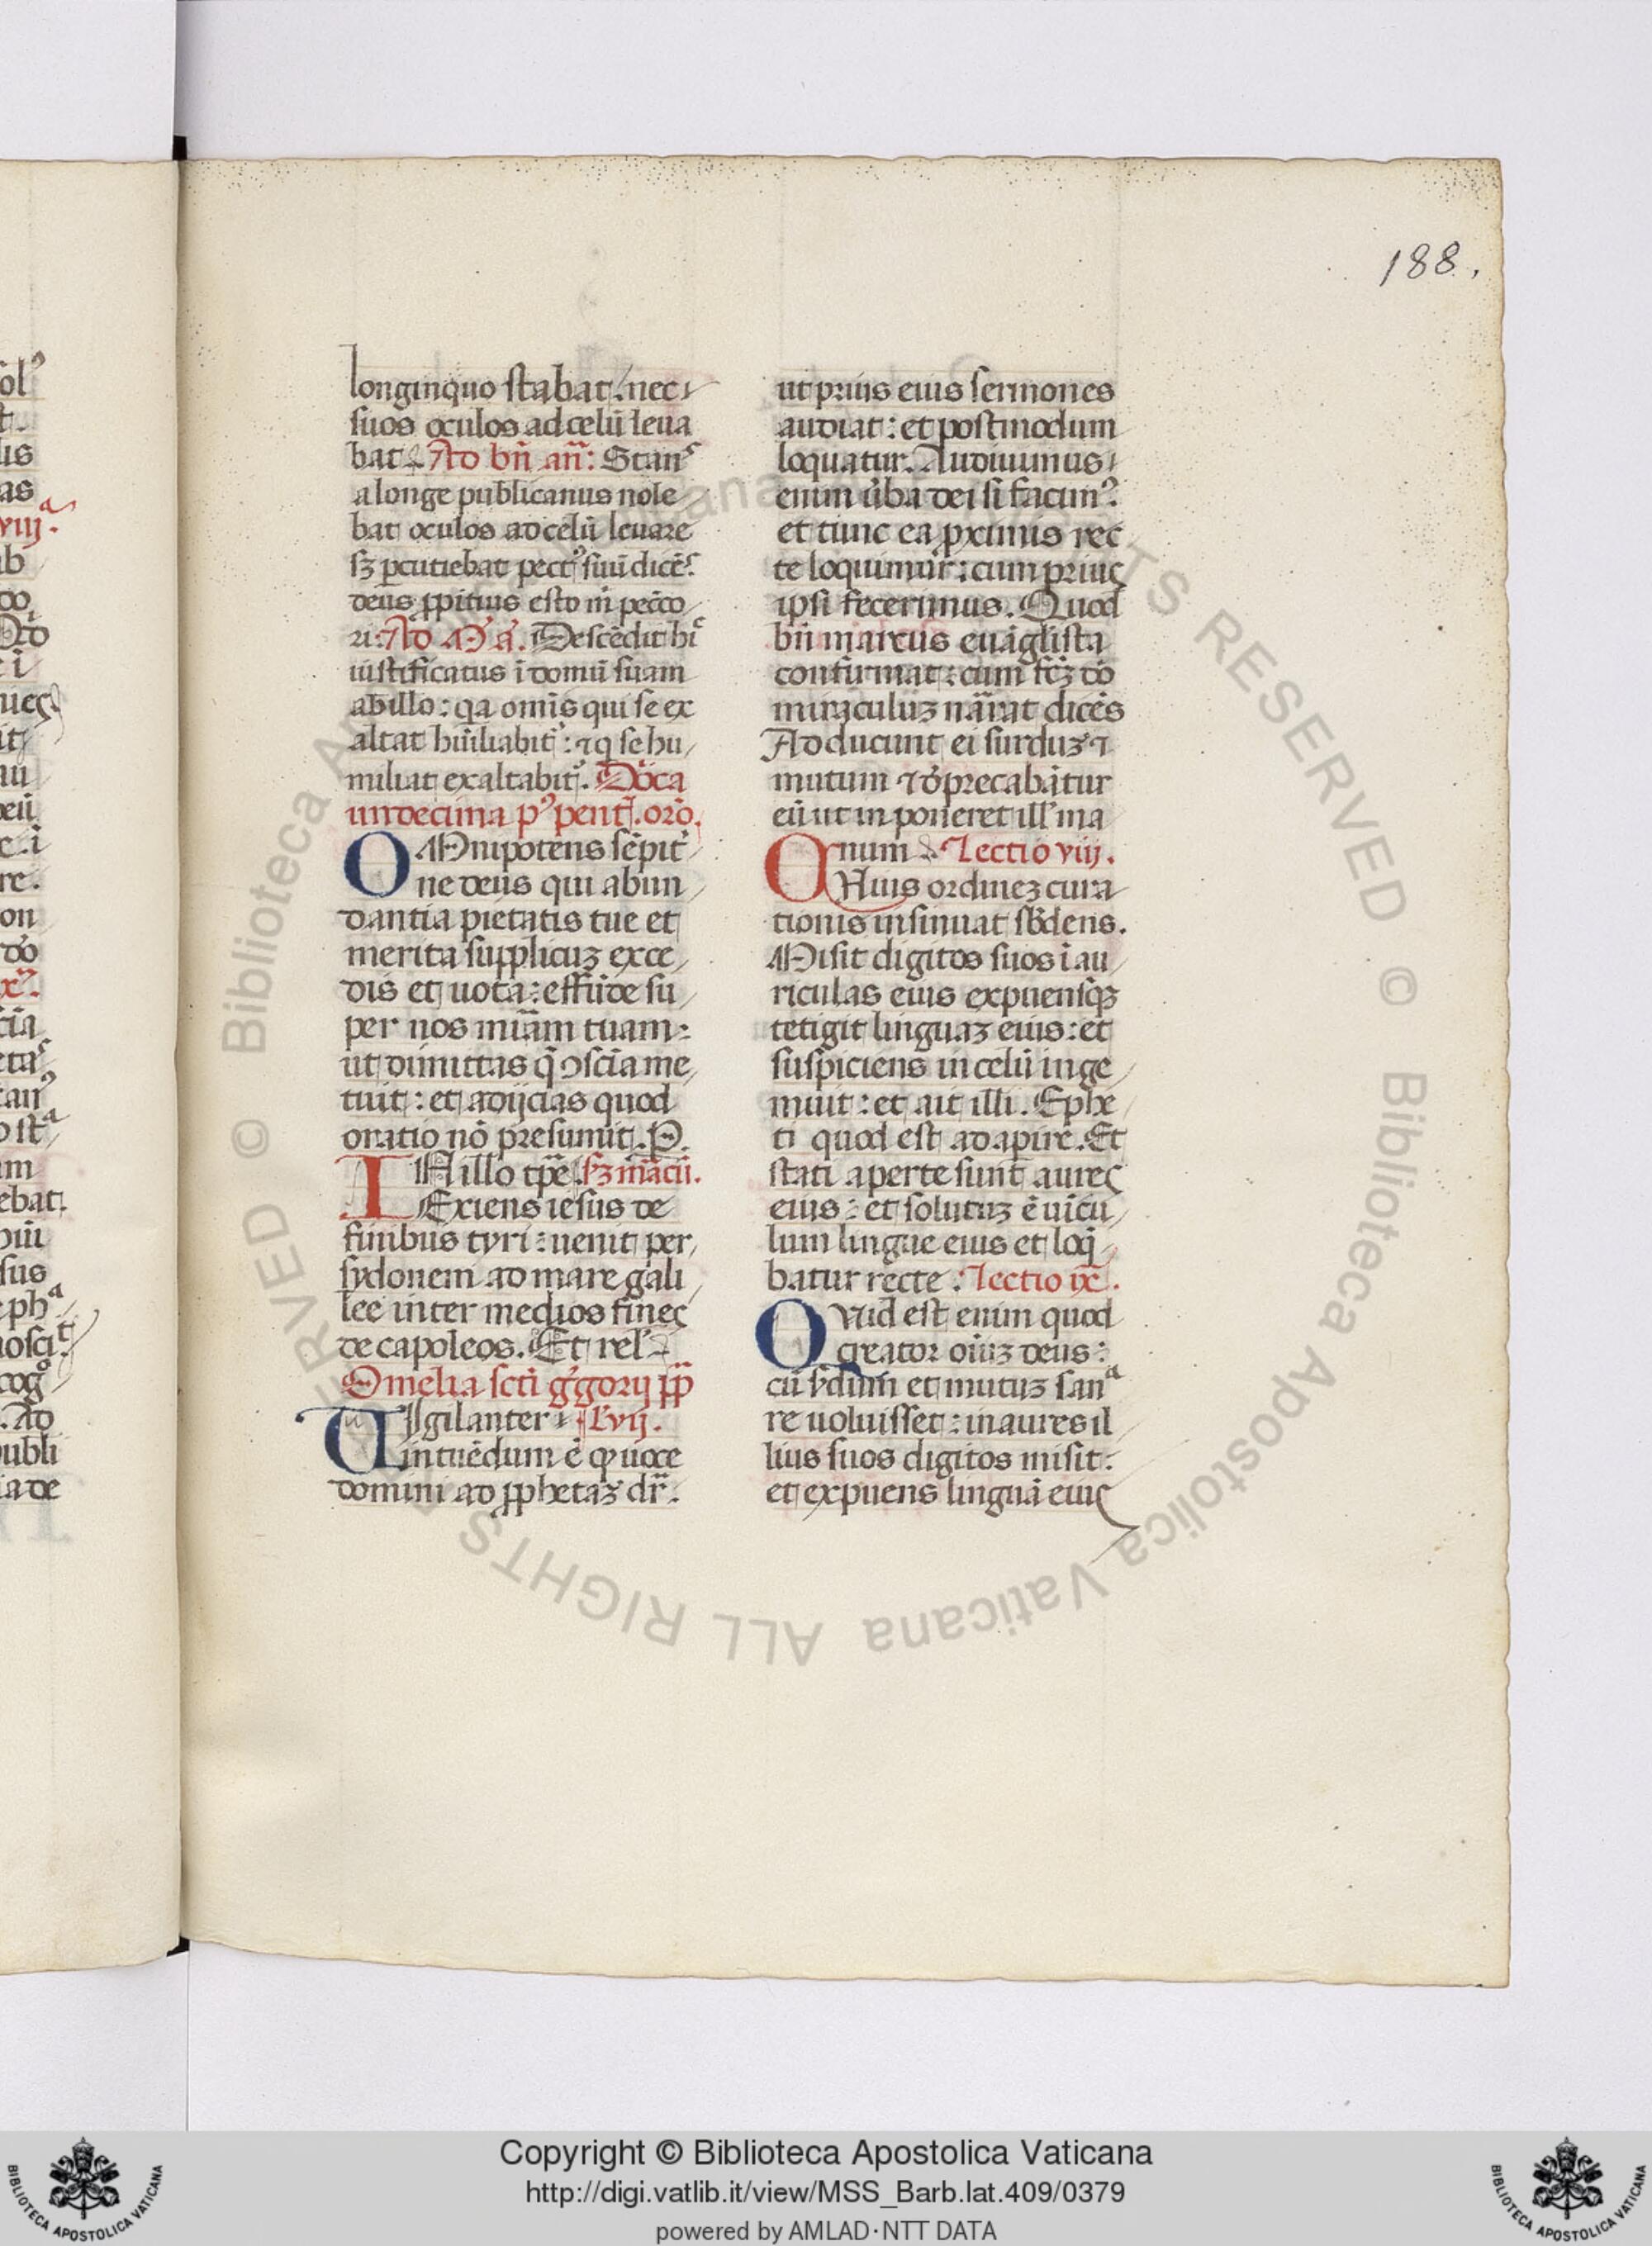 188.
longinquo stabat: nec
suos oculos ad celū leua
bat. Ad bñ añ: Stans
a longe publicanus nole
bat oculos ad celū leuare
sꝫ ꝑcutiebat pectꝰ suū dicēs.
deus ꝓpitius esto m̄ pecc̄o
ri: Ad
Descēdit hic
iustificatus ī domū suam
ab illo: qa omīs qui se ex
altat hūiliabit᷑: ⁊ q se hu
miliat exaltabit᷑. Dōca
undecima pꝰ pent̄. orō.
OMnipotens sēpit̄
ne deus qui abun
dantia pietatis tue et
merita supplicuꝫ exce
dis et uota: effūde su
per nos miām tuam:
ut dimittas q̄ ꝯsciā me
tuit: et adijcias quod
oratio nō presumit. P.
IN illo tp̄e. sꝫ marcū.
Exiens iesus de
finibus tyri: uenit per
sydonem ad mare gali
lee inter medios fines
decapoleos. Et rel
Omelia scti gͥgorij pp̄
UIgilanter L'vij.
intuēdum ē ꝙ uoce
domini ad ꝓphetaꝫ dr̄.
ut prius eius sermones
audiat: et postmodum
loquatur. Audiuimus
enim ūba dei si facimꝰ.
et tunc ea ꝓximis rec
te loquimur: cum prius
ipsi fecerimus. Quod
bn̄ marcus euāglista
confirmat: cum fcꝫ dō
miraculūꝫ nārat dicēs
Adducunt ei surduꝫ ⁊
mutum ⁊ dprecabātur
eū ut in poneret ill' ma
num Lectio viij.
QUius ordineꝫ cura
tionis insinuat sbdens.
Misit digitos suos ī au
riculas eius expuensqꝫ
tetigit linguaꝫ eius: et
suspiciens in celū inge
muit: et ait illi. Ephe
ti quod est adapire. Et
stati aperte sunt aures
eius: et solutuꝫ ē uīcu
lum lingue eius et loq̄
batur recte: Lectio ix.
QUid est enim quod
creator oīuꝫ deus:
cū sʳdum et mutuꝫ sanᵃ
re uoluisset: in aures il
lius suos digitos misit:
et expuens linguā eius
Copyright © Biblioteca Apostolica Vaticana
http://digi.vatlib.it/view/MSS_Barb.lat.409/0379
powered by AMLAD·NTT DATA